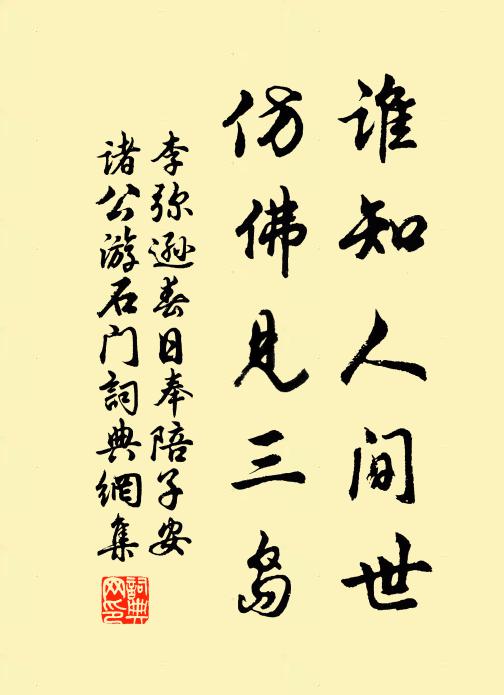 谁知人间世
仿佛见三岛
李弥逊春日奉陪子安
诸公游石门词典網集
詞典網印